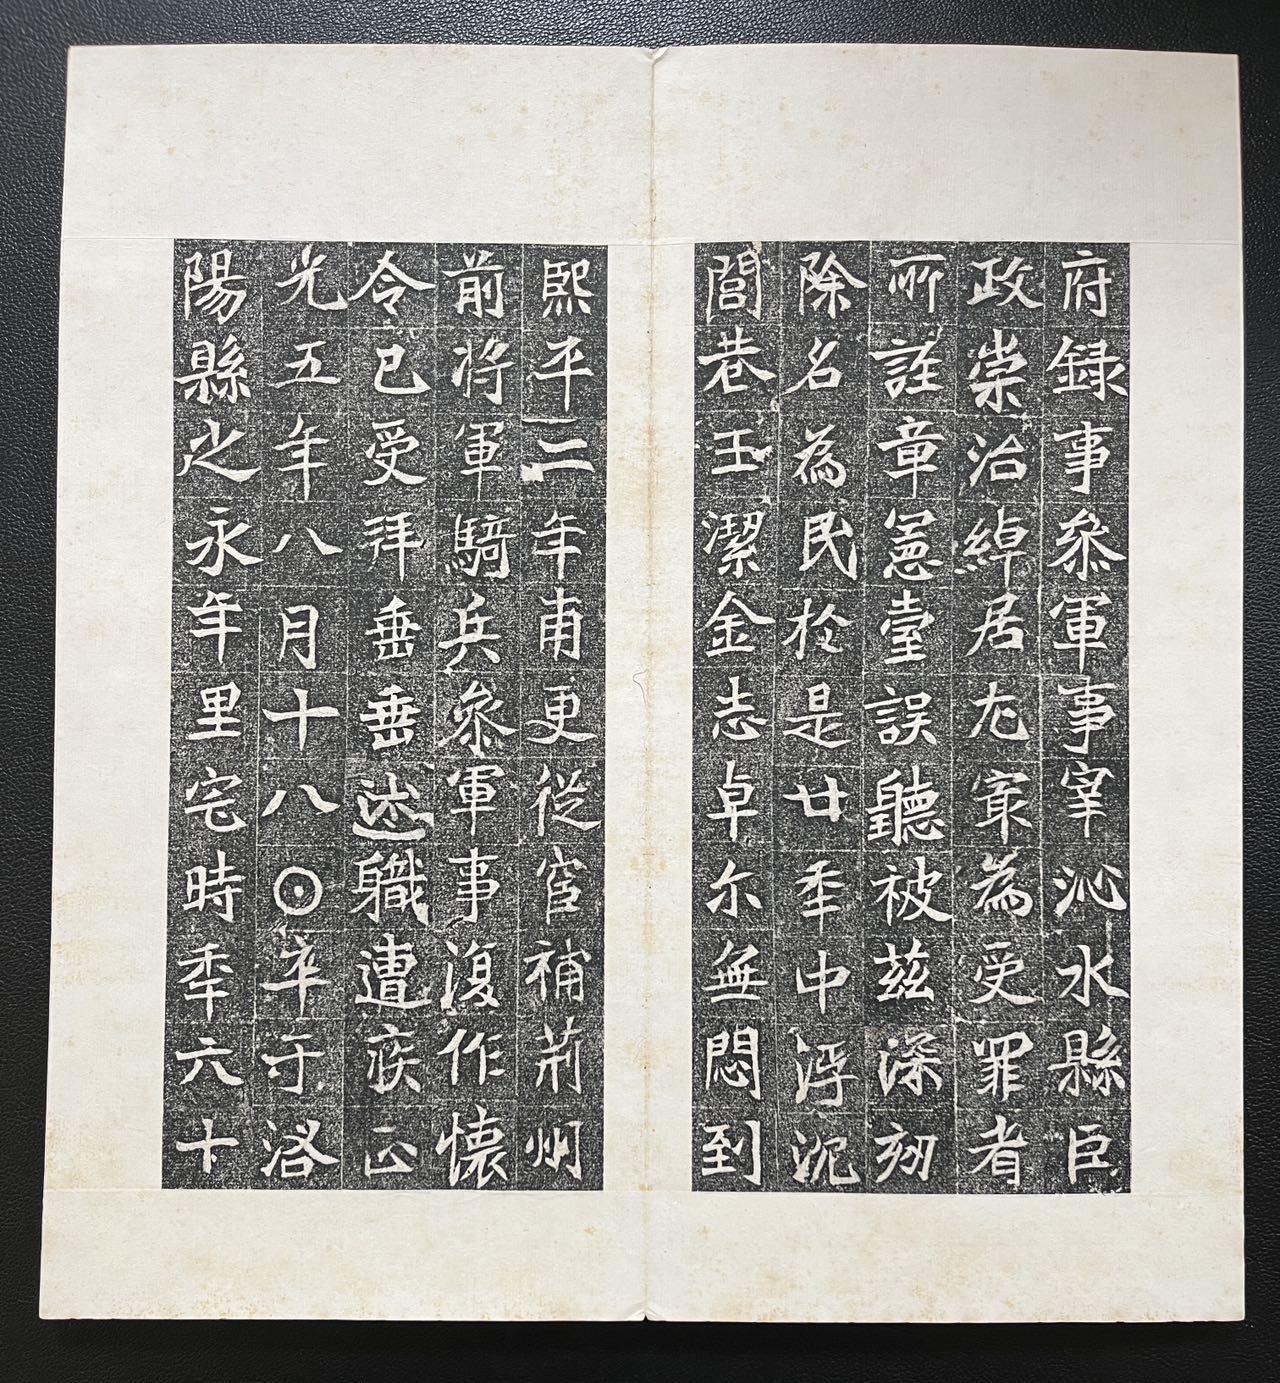 府録事叅軍事宰沁水縣臣
政崇治綽居尤冣為受罪者
所誣章憲臺誤聽被兹深劾
除名為民於是廿年中浮沉
閭巷玉潔金志卓尓無悶到
熙平二年甫更從宦補荊州
前將軍騎兵叅軍事復作懷
令已受拜垂垂述職遭疾正
光五年八月十八⊙卒于洛
陽縣之永年里宅時年六十